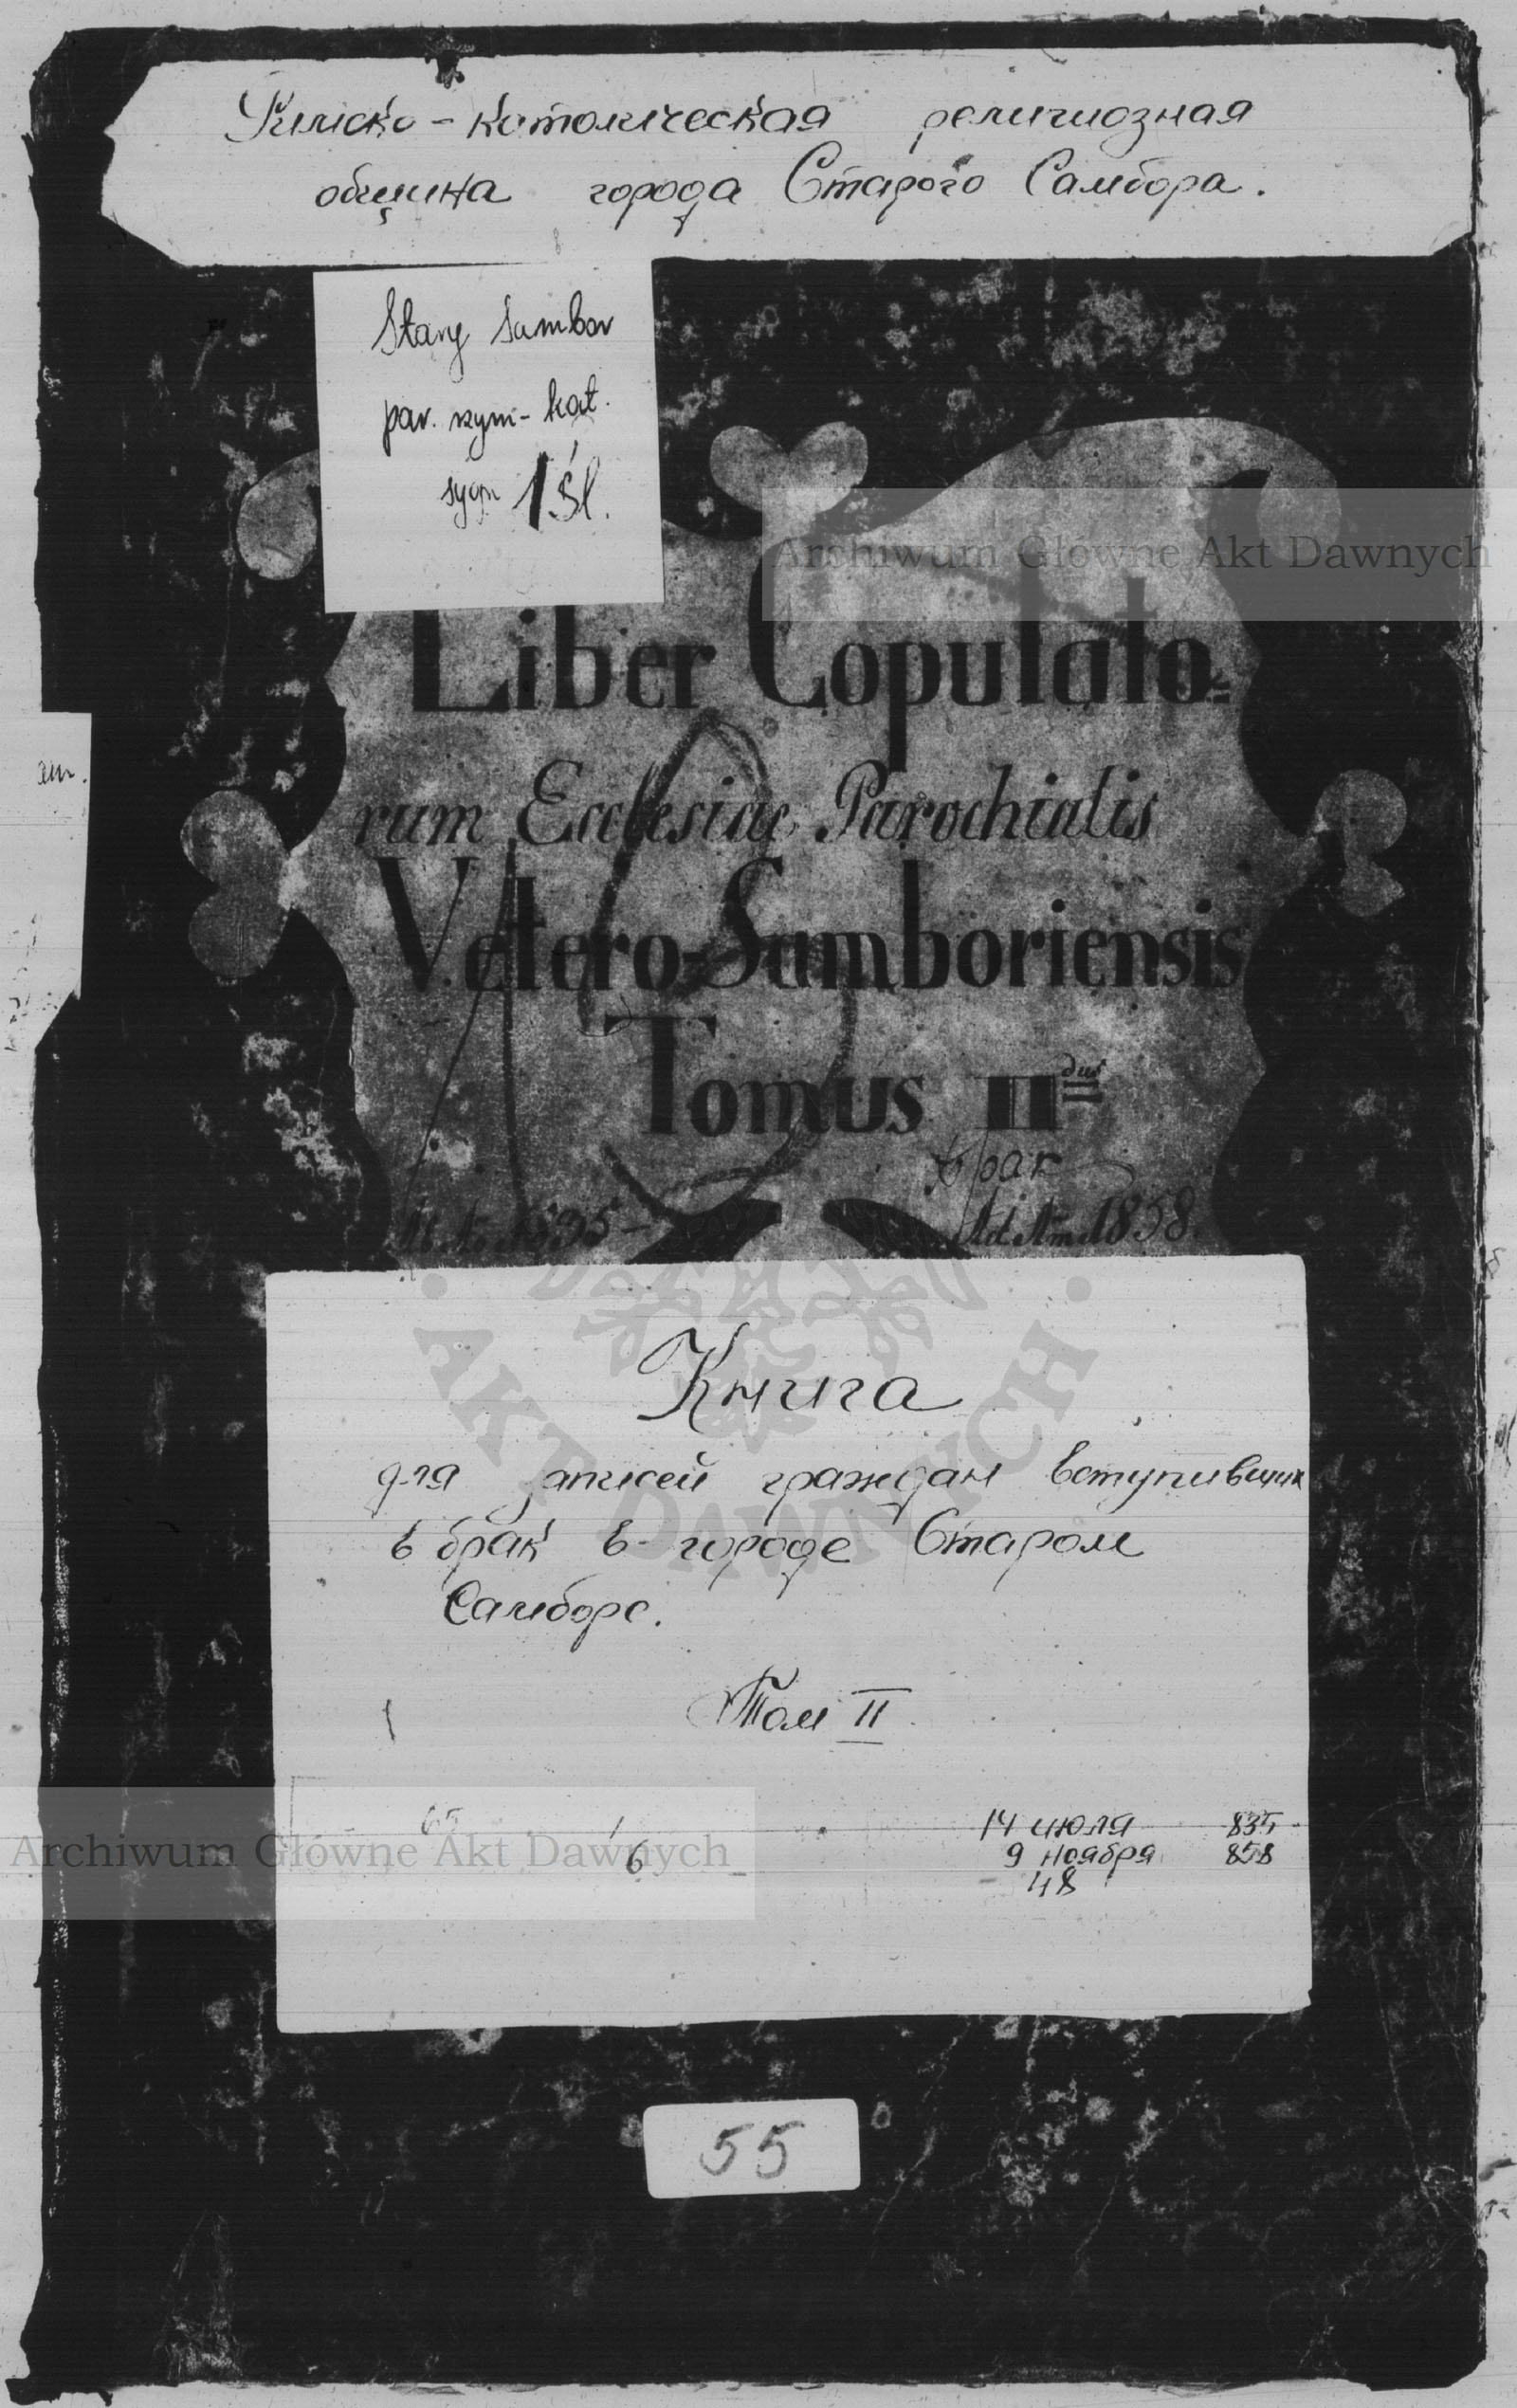 Римско-католическая религиозная
община города Старого Самбора.
Stary Sambor
par. rzym-kat.
sygn 1 Śl.
Archiwum Główne Akt Dawnych
Liber Copulato=
rum Ecclesiae Parochialis
Vetero-Samboriensis
Tomus II dus
брак
Ab Ao 1835 - Ad Am 1858.
Книга
для записей граждан вступивших
в брак в городе Старом
Самборе.
Том II
AKT DAWNYCH
14 июля 835
9 ноября 858
48
6
Archiwum Główne Akt Dawnych
55